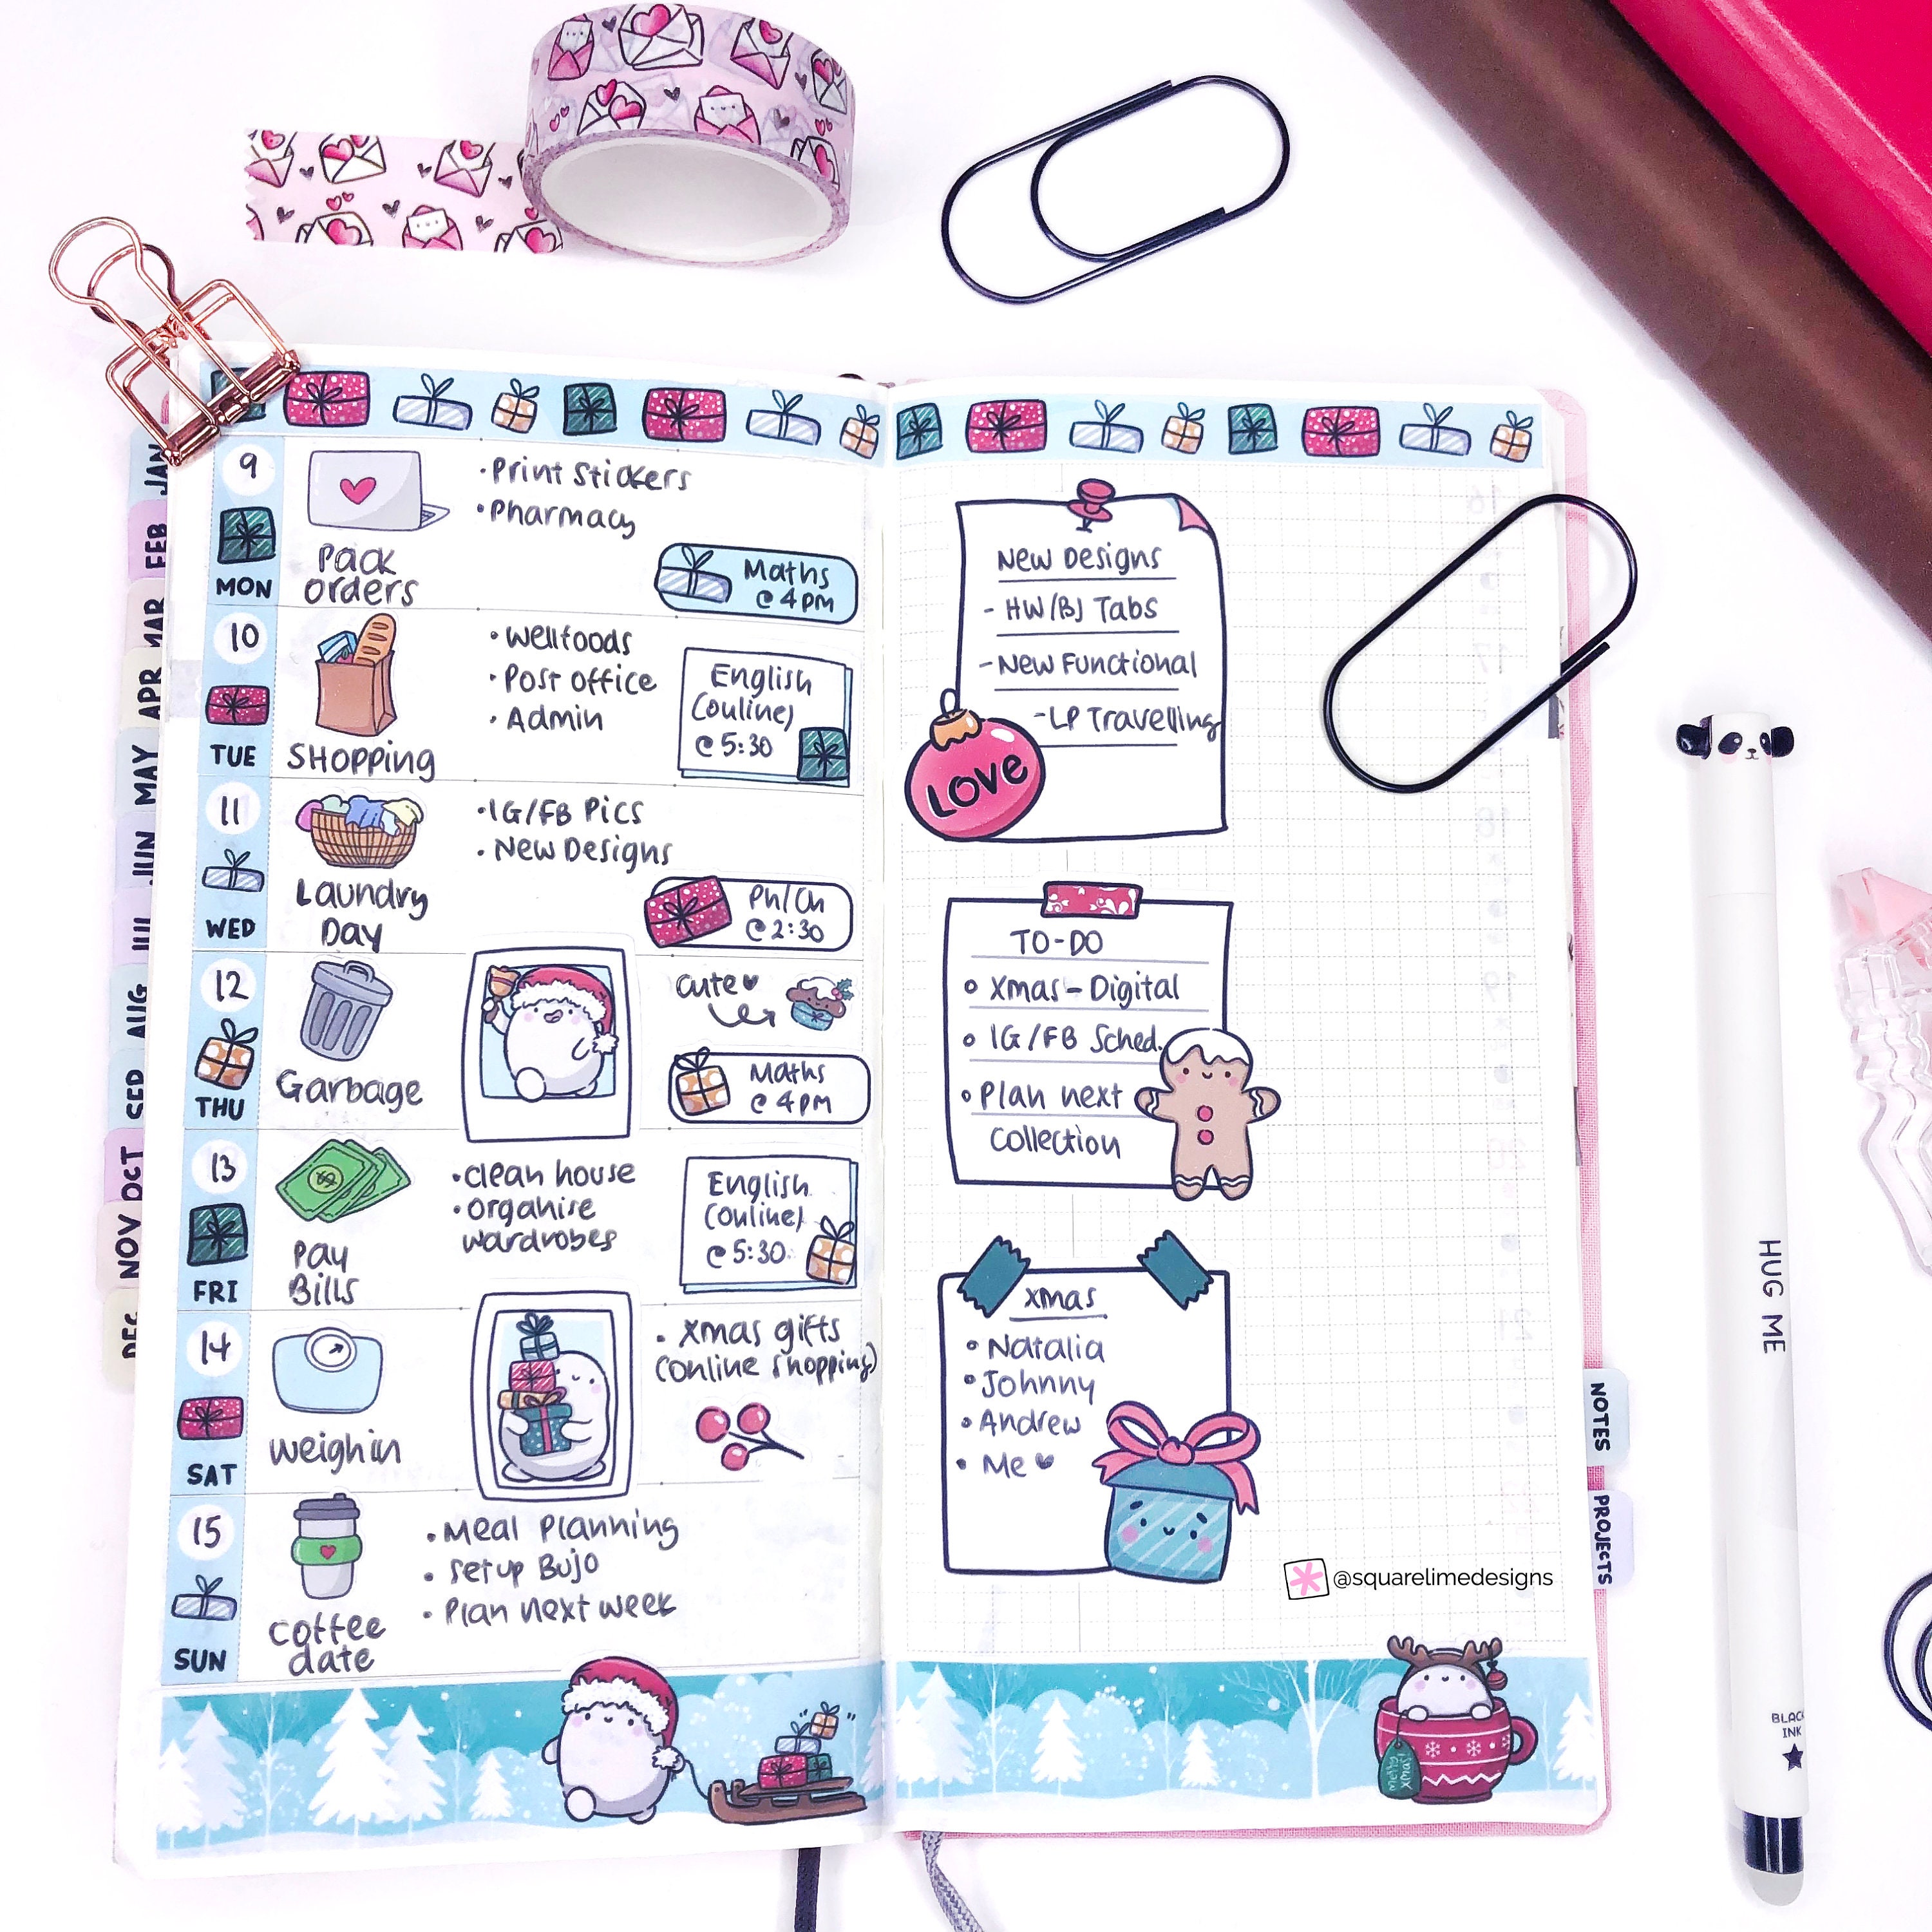 JAN
FEB
MAR
APR
MAY
JUN
JUL
AUG
SEP
OCT
NOV
DEC
9
MON
Pack
orders
• Print Stickers
• Pharmacy
Maths
@ 4PM
10
TUE
SHopping
• Wellfoods
• Post office
• Admin
English
(online)
@ 5:30
11
WED
Laundry
Day
• IG/FB Pics
• New Designs
Ph/Ch
@ 2:30
12
THU
Garbage
cute ♥
Maths
@ 4PM
13
FRI
Pay
Bills
• clean house
• organise
wardrobes
English
(online)
@ 5:30
14
SAT
weigh in
• Xmas gifts
(online shopping)
15
SUN
Coffee
date
• Meal Planning
• setup Bujo
• Plan next week
New Designs
- HW/BJ Tabs
- New Functional
- LP Travelling
LOVE
TO-DO
• Xmas - Digital
• IG/FB Sched.
• Plan next
collection
xmas
• Natalia
• Johnny
• Andrew
• Me ♥
@squarelimedesigns
Merry
Xmas!
NOTES
PROJECTS
HUG ME
BLACK
INK